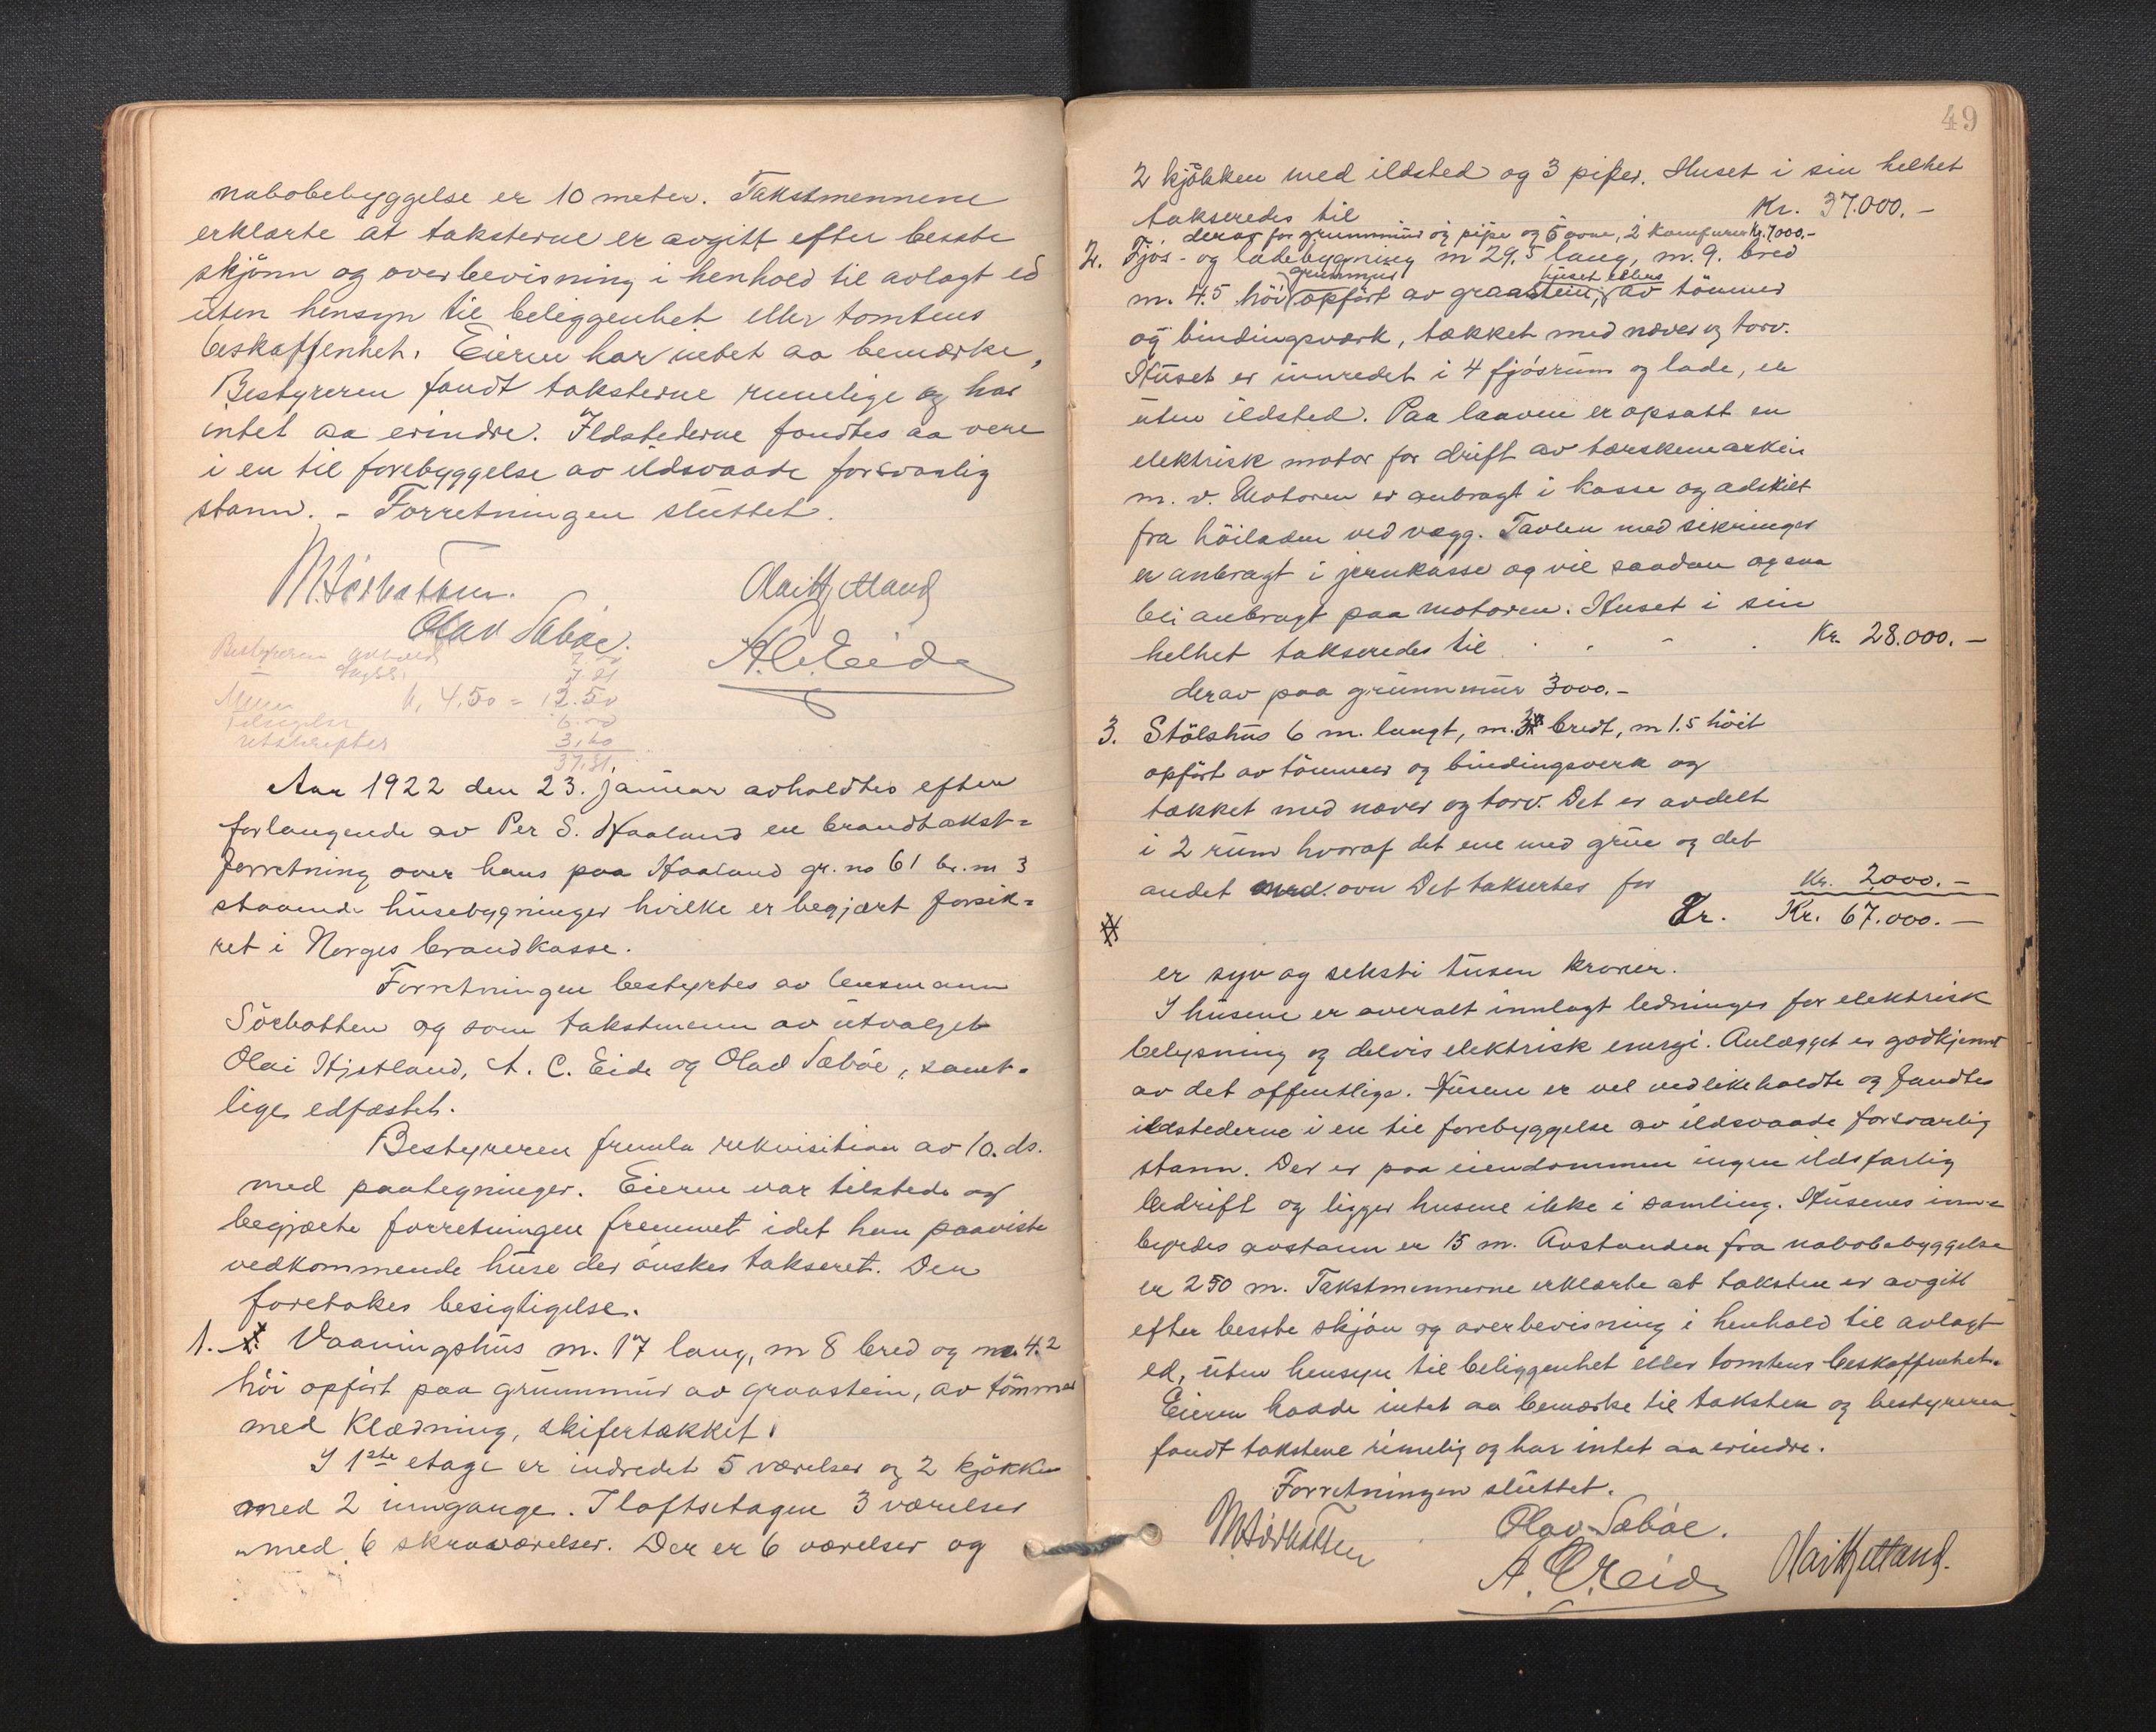 nabobebyggelse er 10 meter. Takstmennene
erklærte at taksterne er avgitt efter besste
skjönn og overbevisning i henhold til avlagt ed
uten hensyn til beliggenhet eller tomtens
beskaffenhet. Eieren har intet aa bemærke,
Bestyreren fandt taksterne rimelige og har
intet aa erindre. Ildstederne fandtes aa være
i en til forebyggelse av ildsvaade forsvarlig
stann. - Forretningen sluttet.
M. Sörbotten. Olai Hjetland
Olav Sæböe. A. C. Eide
Bestyreren
4,50 = 12.50
utskrifter 3,60
37.81
Aar 1922 den 23. januar avholdtes efter
forlangende av Per S. Haaland en brandtakst-
forretning over hans paa Haaland gr. no 61 br. m 3
staaende husebygninger hvilke er begjært forsik-
ret i Norges brandkasse.
Forretningen bestyrtes av lensmann
Sörbotten og som takstmenn av utvalget
Olai Hjetland, A. C. Eide og Olav Sæböe, samt-
lige edfæstet.
Bestyreren fremla rekvisition av 10. ds.
med paategninger. Eieren var tilstede og
begjærte forretningen fremmet idet han paaviste
vedkommende huse der önskes taksert. Den
foretokes besigtigelse.
1. Vaaningshus m. 17 lang, m 8 bred og m. 4.2
höi opfört paa grunnmur av graastein, av tömmer
med klædning, skifertækket.
I 1ste etage er indredet 5 værelser og 2 kjökken
med 2 inngange. I loftsetagen 3 værelser
med 6 skraaværelser. Der er 6 værelser og
49
2 kjökken med ildsted og 3 piper. Huset i sin helhet
takseredes til Kr. 37.000.-
derav for grunnmur og pipe og 5 ovne, 2 komfurer Kr. 7000.-
2. Fjös- og ladebygning m 29.5 lang, m. 9. bred
grunnmur huset ellers
m. 4.5 höi opfört av graastein, av tömmer
og bindingsværk, tækket med næver og torv.
Huset er innredet i 4 fjösrum og lade, er
uten ildsted. Paa laaven er opsatt en
elektrisk motor for drift av tærskemaskin
m. v. Motoren er anbragt i kasse og adskilt
fra höiladen ved vægg. Tavlen med sikringer
er anbragt i jernkasse og vil saadan ogsaa
bli anbragt paa motoren. Huset i sin
helhet takseredes til Kr. 28.000.-
derav paa grunnmur 3000.-
3. Stölshus 6 m. langt, m. bredt, m 1.5 höit
opfört av tömmer og bindingsverk og
tækket med næver og torv. Det er avdelt
i 2 rum hvoraf det ene med grue og det
andet med ovn Det taksertes for Kr. 2000.-
Kr. Kr. 67.000.-
er syv og seksti tusen kroner.
I husene er overalt innlagt ledninger for elektrisk
belysning og delvis elektrisk energi. Anlægget er godkjennt
av det offentlige. Husene er vel vedlikeholdte og fandtes
ildstederne i en til forebyggelse av ildsvaade forsvarlig
stann. Der er paa eiendommen ingen ildsfarlig
bedrift og ligger husene ikke i samling. Husenes inn-
byrdes avstann er 15 m. Avstanden fra nabobebyggelse
er 250 m. Takstmennerne erklærte at taksten er avgitt
efter besste skjön og overbevisning i henhold til avlagt
ed, uten hensyn til beliggenhet eller tomtens beskaffenhet.
Eieren hadde intet aa bemærke til taksten og bestyreren
fandt takstene rimelig og har intet aa erindre.
Forretningen sluttet.
M. Sörbotten Olav Sæböe.
A. C. Eide Olai Hjetland.